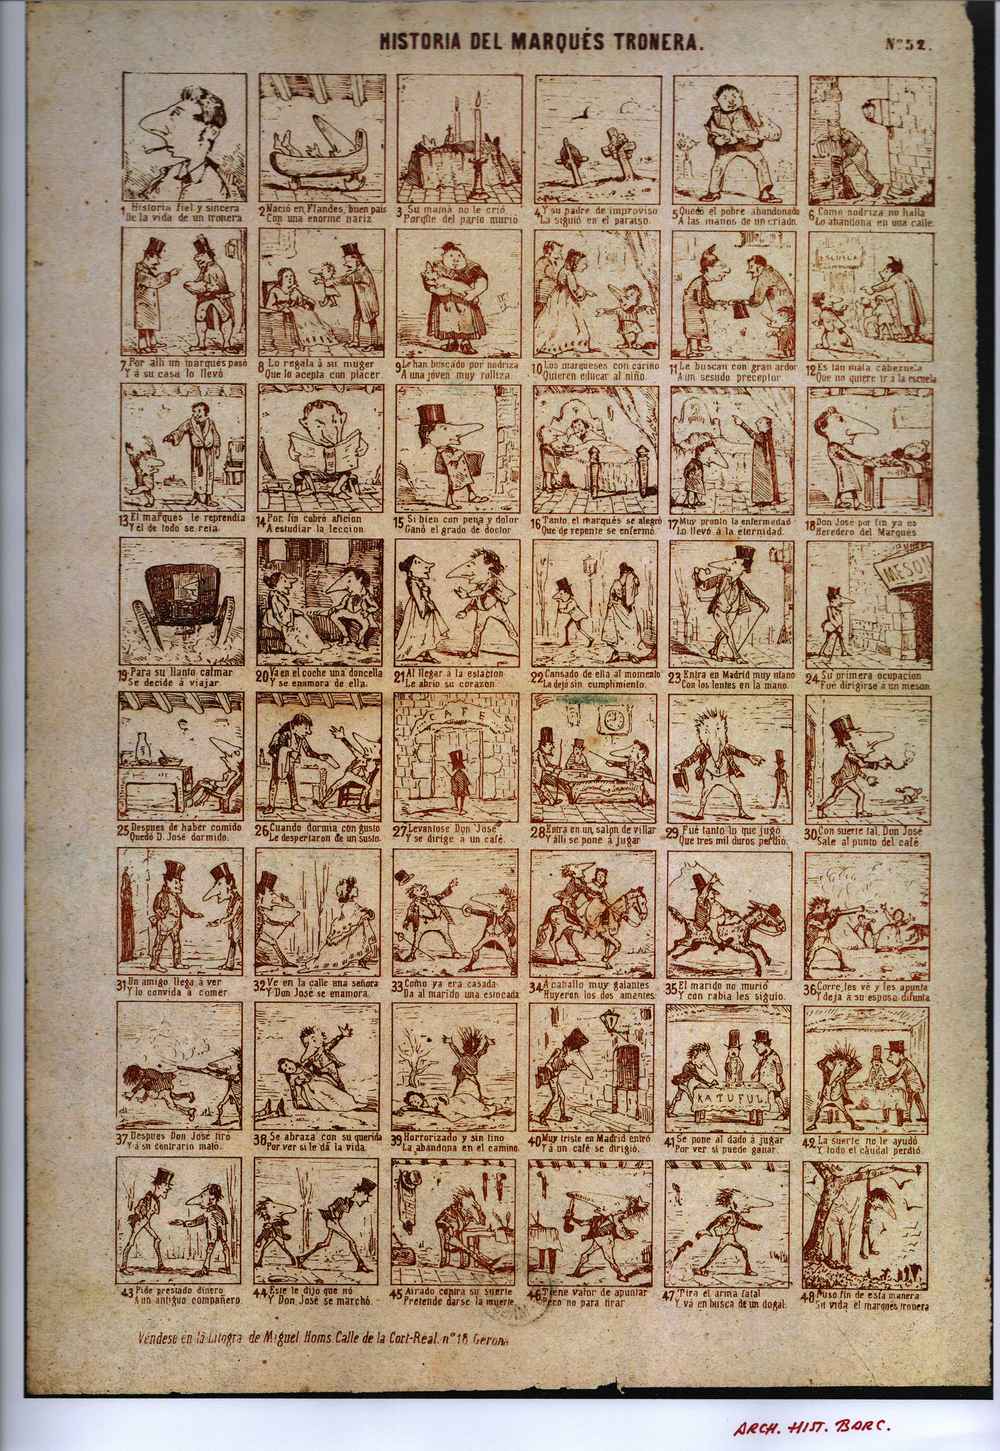 HISTORIA DEL MARQUÉS TRONERA.
Nº 52.
1 Historia fiel y sincera
De la vida de un tronera
2 Nació en Flandes, buen pais
Con una enorme nariz
3 Su mamá no le crió
Porque del parto murió
4 Y su padre de improviso
La siguió en el paraiso
5 Quedó el pobre abandonado
A las manos de un criado.
6 Como nodriza no halla
Lo abandona en una calle
7 Por alli un marqués pasó
Y á su casa lo llevó
8 Lo regala á su muger
Que lo acepta con placer
9 Le han buscado por nodriza
A una joven muy rolliza
10 Los marqueses con cariño
Quieren educar al niño.
11 Le buscan con gran ardor
A un sesudo preceptor
ESCUELA
12 Es tan mala cabezuela
Que no quiere ir á la escuela
13 El marqués le reprendia
Y el de todo se reia.
14 Por fin cobró aficion
A estudiar la leccion.
15 Si bien con pena y dolor
Ganó el grado de doctor
16 Tanto el marqués se alegró
Que de repente se enfermó.
17 Muy pronto la enfermedad
Lo llevó á la eternidad.
18 Don José por fin ya es
Heredero del Marqués
19 Para su llanto calmar
Se decide á viajar.
20 Va en el coche una doncella
Y se enamora de ella.
21 Al llegar á la estacion
Le abrio su corazon.
22 Cansado de ella al momento
La dejó sin cumplimiento.
23 Entra en Madrid muy ufano
Con los lentes en la mano.
MESON
24 Su primera ocupacion
Fué dirigirse a un meson
25 Despues de haber comido
Quedó D. José dormido.
26 Cuando dormia con gusto
Le despertaron de un susto.
CAFE
27 Levantose Don José
Y se dirige á un café.
28 Entra en un salon de villar
Y alli se pone á jugar
29 Fué tanto lo que jugó
Que tres mil duros perdio.
30 Con suerte tal, Don José
Sale al punto del café.
31 Un amigo llega á ver
Y lo convida á comer
32 Ve en la calle una señora
Y Don José se enamora.
33 Como ya era casada
Da al marido una estocada
34 A caballo muy galantes
Huyeron los dos amantes.
35 El marido no murió
Y con rabia les siguio.
36 Corre, les vé y les apunta
Y deja a su esposa difunta
37 Despues Don José tiró
Y á su contrario mató.
38 Se abraza con su querida
Por ver si le dá la vida.
39 Horrorizado y sin tino
La abandona en el camino.
40 Muy triste en Madrid entró
Y á un café se dirigió.
KATUFUL
41 Se pone al dado á jugar
Por ver si puede ganar.
42 La suerte no le ayudó
Y todo el caudal perdió.
43 Pide prestado dinero
A un antiguo compañero
44 Este le dijo que nó
Y Don José se marchó.
45 Airado contra su suerte
Pretende darse la muerte
46 Tiene valor de apuntar
Pero no para tirar
47 Tira el arma fatal
Y vá en busca de un dogal.
48 Puso fin de esta manera
Su vida el marqués tronera
Véndese en la Litogra de Miguel Homs Calle de la Cort-Real. nº 18 Gerona
ARCH. HIST. BARC.